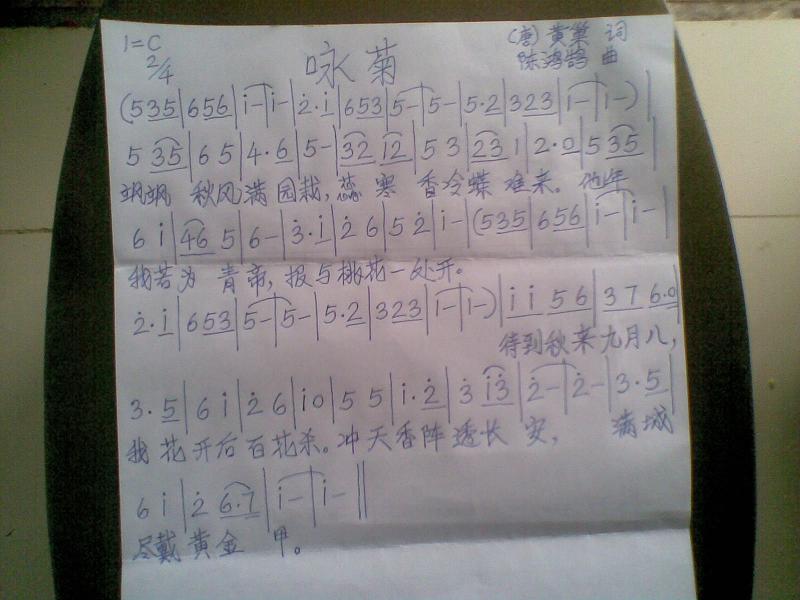 1=C
2/4
咏菊
(唐) 黄巢 词
陈鸿鹄 曲
(5 35|6 56|i̇-|i̇-|2̇·i̇|6 53|5-|5-|5·2|3 23|i-|i-)|
5 35|6 5|4·6|5-|32 12|5 3|23 1|2·0|5 35|
飒飒 秋风满园栽,蕊 寒 香冷蝶 难来。他年
6 i̇|46 5|6-|3̇·i̇|2̇ 6|5 2̇|i̇-|(5 35|6 56|i̇-|i̇-|
我若为 青帝,报与桃花一处开。
2̇·i̇|6 53|5-|5-|5·2|3 23|i-|i-)|i̇ i̇ 5 6|3 7 6·0|
待到秋来九月八,
3·5|6 i̇|2̇ 6|i̇ 0|5 5|i̇·2̇|3̇ i̇3̇|2̇-|2̇-|3·5|
我花开后百花杀。冲天香阵透长 安, 满城
6 i̇|2̇ 6·7|i̇-|i̇-‖
尽戴黄金 甲。